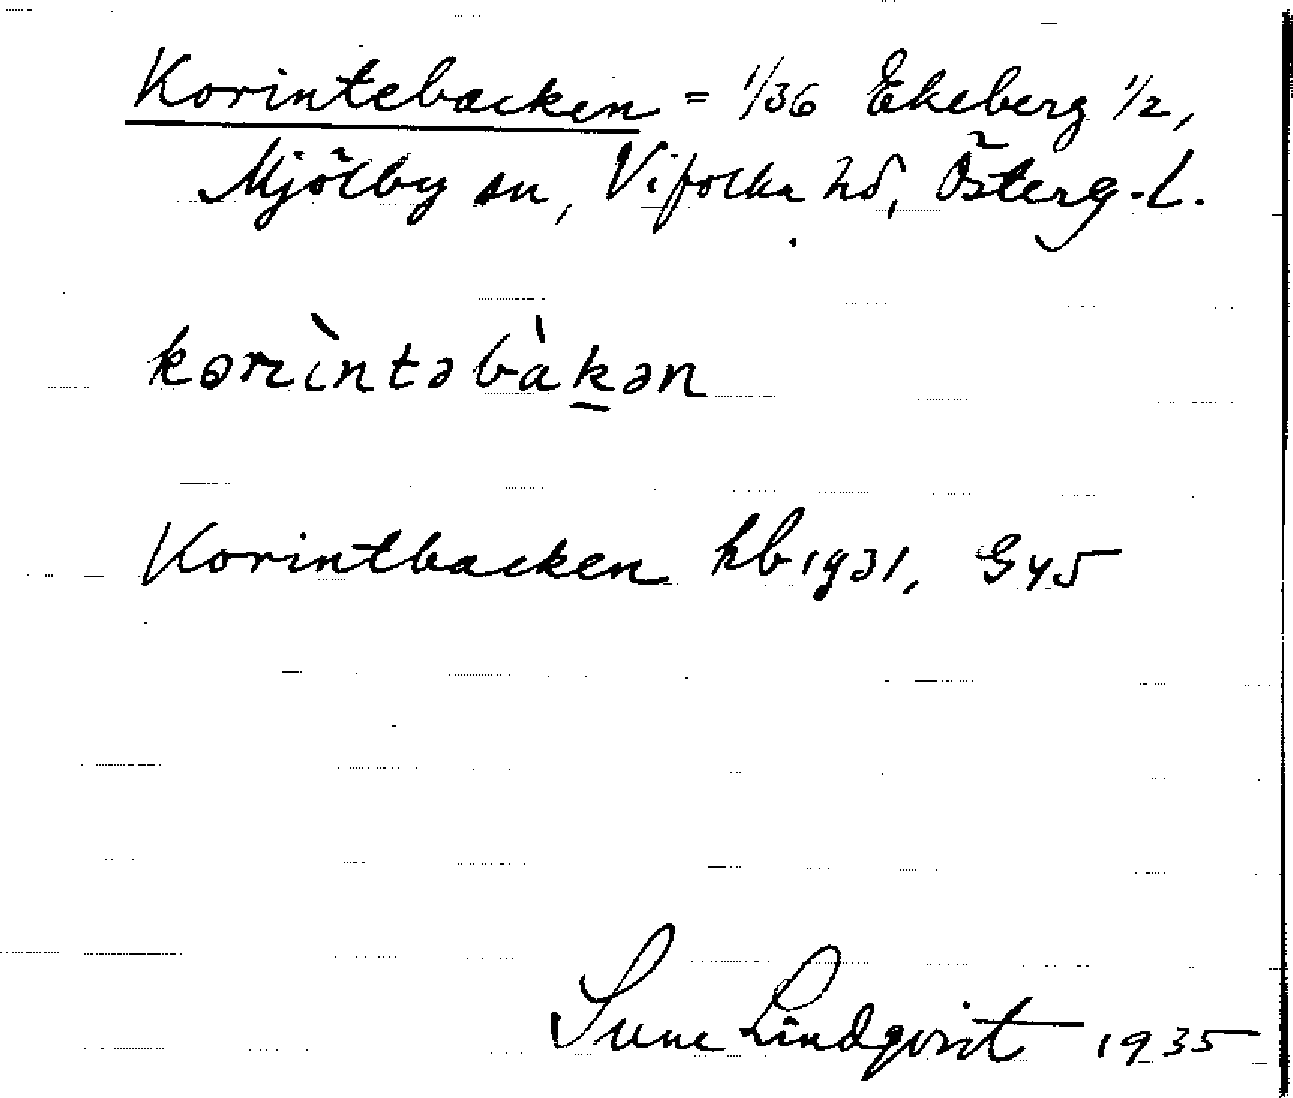 Korintebacken = 1/36 Ekeberg 1/2,
Mjölby sn, Vifolka hd, Österg-l.
korìntəbàkən
Korintbacken hb 1931, G45
Sune Lindqvist 1935